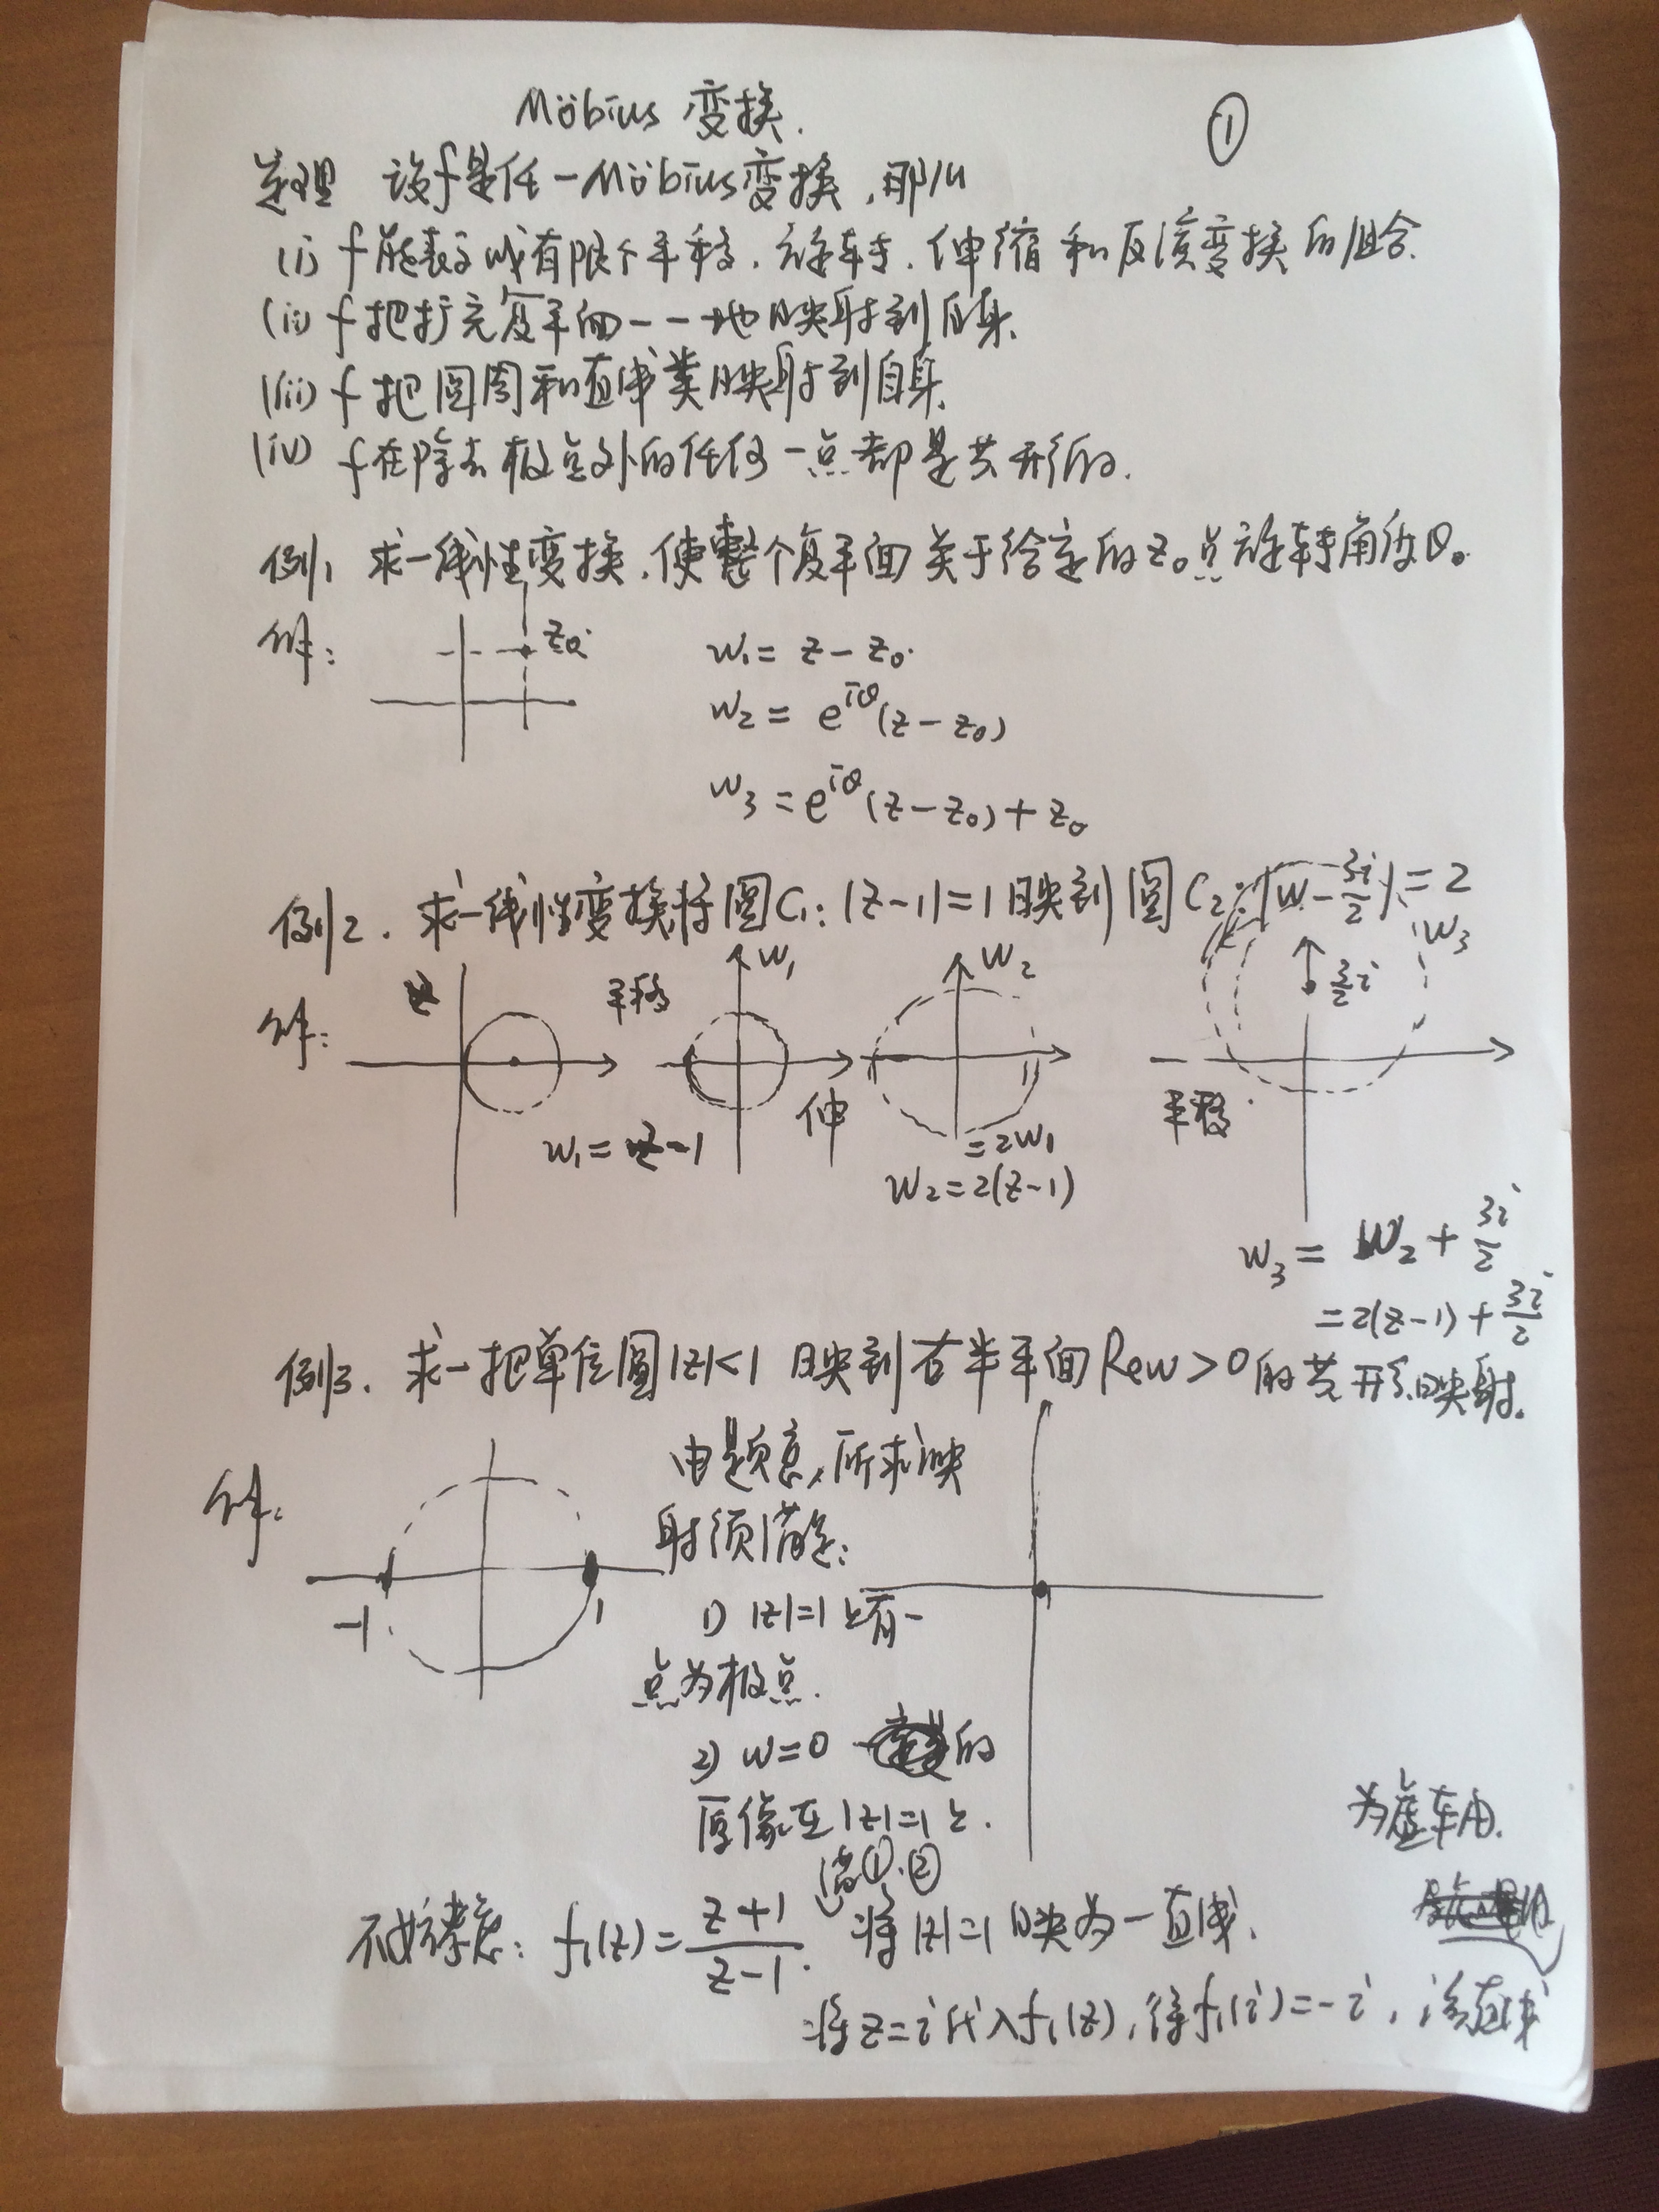 Möbius 变换.
①
定理 设f是任一Möbius变换,那么
(i) f能表示成有限个平移、旋转、伸缩和反演变换的组合.
(ii) f把扩充复平面一一地映射到自身.
(iii) f把圆周和直线类映射到自身.
(iv) f在除去极点外的任何一点都是共形的.
例1 求一线性变换,使整个复平面关于给定的z₀点旋转角度θ。
解:
z₀
w₁ = z - z₀.
w₂ = e^{iθ}(z - z₀)
w₃ = e^{iθ}(z - z₀) + z₀
例2. 求一线性变换将圆C₁: |z-1|=1映到圆C₂: |w - 3i/2| = 2
解:
z
平移
w₁
w₂
3/2 i
w₃
伸
平移
w₁ = z-1
=2w₁
w₂=2(z-1)
w₃ = w₂ + 3i/2
=2(z-1) + 3i/2
例3. 求一把单位圆|z|<1 映到右半平面Rew>0的共形映射。
解:
-1
1
由题意,所求映
射须满足:
1) |z|=1上有一
点为极点.
2) w=0 的
原像在|z|=1上.
满①.②
不妨考虑: f₁(z) = (z+1)/(z-1). 将|z|=1映为一直线.
将z=i代入f₁(z),得f₁(i)=-i, 该直线
为虚轴.